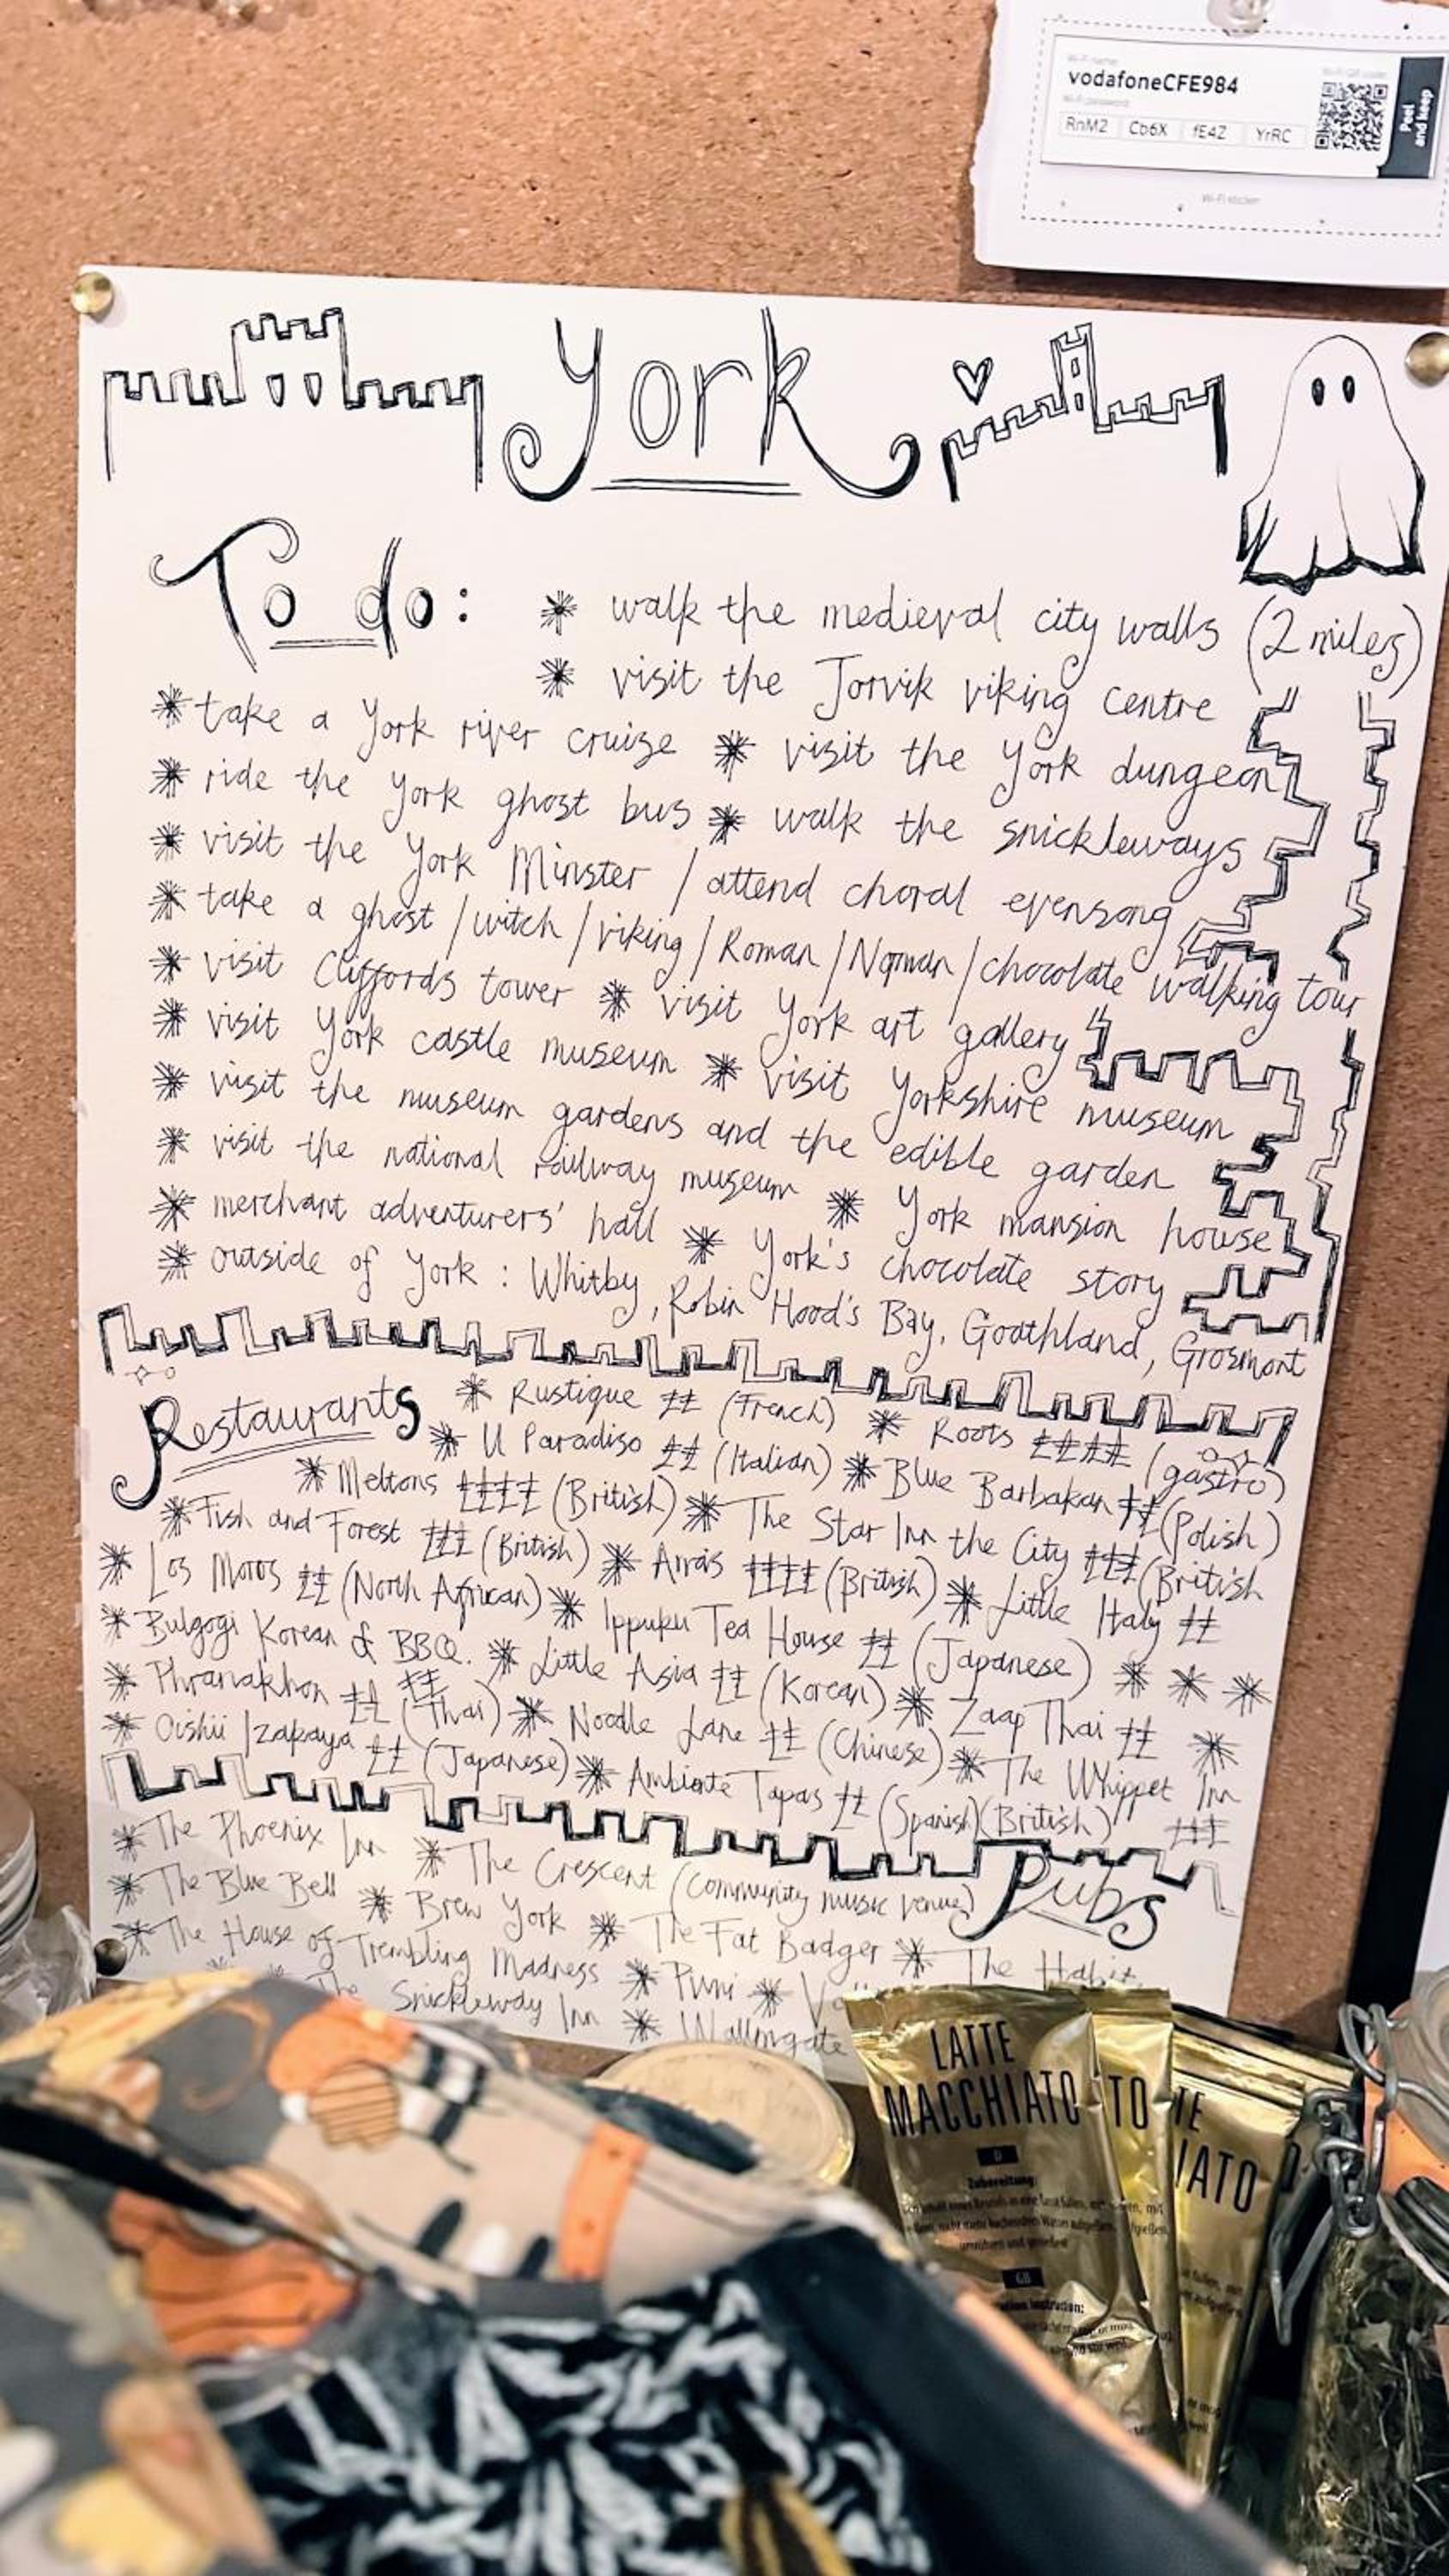 vodafoneCFE984
RnM2 Cb6X fE4Z YrRC
Peel and keep
Wi-Fi sticker
York
To do:
* walk the medieval city walls (2 miles)
* visit the Jorvik viking centre
* take a York river cruise * visit the York dungeon
* ride the York ghost bus * walk the snickleways
* visit the York Minster / attend choral evensong
* take a ghost / witch / viking / Roman / Norman / chocolate walking tour
* visit Cliffords tower * visit York art gallery
* visit York castle museum * visit Yorkshire museum
* visit the museum gardens and the edible garden
* visit the national railway museum * York mansion house
* merchant adventurers' hall * York's chocolate story
* outside of York : Whitby, Robin Hood's Bay, Goathland, Grosmont
Restaurants * Rustique ££ (French) * Roots ££££ (gastro)
* Il Paradiso ££ (Italian) * Blue Barbakan ££ (Polish)
* Meltons ££££ (British) * The Star Inn the City £££ (British
* Fish and Forest £££ (British) * Arras ££££ (British) * Little Italy ££
* Los Moros ££ (North African) * Ippuku Tea House ££ (Japanese) * * *
* Bulgogi Korean & BBQ. ££ * Little Asia ££ (Korean) * Zaap Thai ££ *
* Phranakhon ££ (Thai) * Noodle Lane ££ (Chinese) * The Whippet Inn
* Oishii Izakaya ££ (Japanese) * Ambiente Tapas ££ (Spanish) (British) £££
Pubs
* The Phoenix Inn * The Crescent (community music venue)
* The Blue Bell * Brew York * The Fat Badger * The Habit
* The House of Trembling Madness * Pivni *
The Snickleway Inn * Walmgate
LATTE
MACCHIATO
TO
TE
IATO
D
Zubereitung:
GB